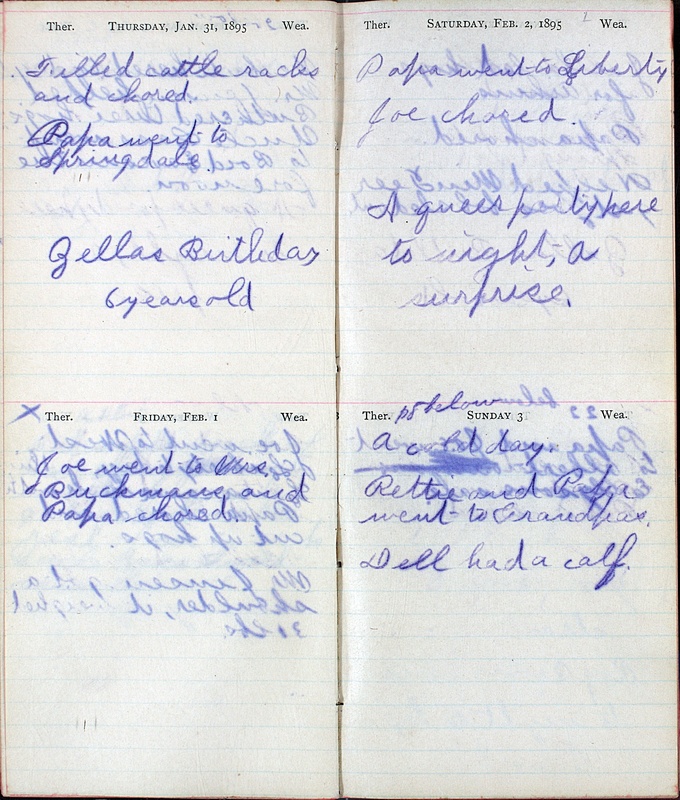 Ther. THURSDAY, JAN. 31, 1895 Wea.
Filled cattle racks
and chored.
Papa went to
Springdale.
Zellas Birthday
6 years old
Ther. FRIDAY, FEB. 1 Wea.
Joe went to Mrs.
Buckmans and
Papa chored.
Ther. SATURDAY, FEB. 2, 1895 Wea.
Papa went to Liberty
Joe chored.
A queer party here
to night, a
surprise.
Ther. below SUNDAY 3 Wea.
A cold day.
Rettie and Papa
went to Grandpas.
Dell had a calf.